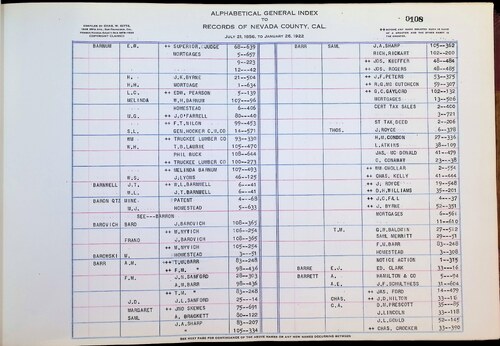 ALPHABETICAL GENERAL INDEX
TO
RECORDS OF NEVADA COUNTY, CAL.
JULY 21, 1856, TO JANUARY 28, 1922
0108
BARNUM E.W. ++ SUPERIOR, JUDGE 68--639
MORTGAGES 5--657
9--223
12--42
H. J.F. BYRNE 21--504
H.W. MORTGAGE 1--634
L.C. ++ EDW. PEARSON 5--139
MELINDA W.H. BARNUM 107--96
HOMESTEAD 6--406
U.G. ++ J.O'FARRELL 80--448
++ F.T. NILON 99--453
S.L. GEN. HOOKER C.M.CO 14--571
WM ++ TRUCKEE LUMBER CO 93--330
W.H. ++ T.B. LAURIE 105--470
PHIL BUCK 108--644
++ TRUCKEE LUMBER CO 100--273
++ MELINDA BARNUM 107--493
W.S. J. LYONS 46--125
BARNWELL J.T. ++ W.L. BARNWELL 6--41
W.L. ++ J.T. BARNWELL 6--41
MINE PATENT 4--68
M.J. HOMESTEAD 9--633
SEE---BARRON
BAROVICH BARO J. BAROVICH 108--365
++ M. NYICH 108--254
FRANO J. BAROVICH 108--365
++ M. NYICH 108--254
BAROWSKI M. HOMESTEAD 3--51
BARR A.M. ++ T.M. BARR 83--248
++ F.M. " 98--434
F.M. J.H. SANFORD 28--303
A.M. BARR 98--436
++ T.M. " 83--248
J.D. J.L. SANFORD 25--14
MARGARET ++ JNO SKEWES 75--691
SAML A. BRACKETT 80--122
J.A. SHARP 83--207
" 105--334
BARR SAML J.A. SHARP 105--362
RICH. RICKART 102--200
++ JOS. KEUFFER 48--484
JOS. ROGERS 48--485
++ J.F. PETERS 53--375
++ R.G. MC CUTCHEN 59--307
++ G.C. GAYLORD 102--152
MORTGAGES 13--506
CERT TAX SALES 2--400
3--721
ST TAX DEED 2--206
THOS. J. ROYCE 6--378
H.W. CONDON 27--336
L. ATKINS 38--109
JAS. MC DONALD 41--479
C. CONAWAY 23--38
++ WM CHOLLAR 2--554
++ CHAS. KELLY 41--444
++ J. ROYCE 19--548
++ D.H. WILLIAMS 35--201
++ J.C. FALL 4--37
++ J. BYRNE 52--351
MORTGAGES 6--561
11--610
T.M. G.R. BALDWIN 27--512
SAML MERRITT 29--51
F.M. BARR 83--248
HOMESTEAD 3--308
NOTICE ACTION 1--375
BARRE E.J. ED. CLARK 33--16
BARRETT A. HAMILTON & CO 5--24
A.E. J.F. SCHULTHESS 31--604
++ JAS. FORD 14--479
CHAS. ++ J.D. HILTON 33--16
C.A. D.M. PHIPPS 35--85
J. LINCOLN 33--118
J.L. GOULD 52--145
++ CHAS. CROCKER 33--390